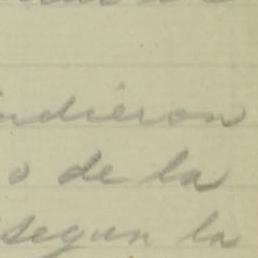 ndieron
o de la
segun la